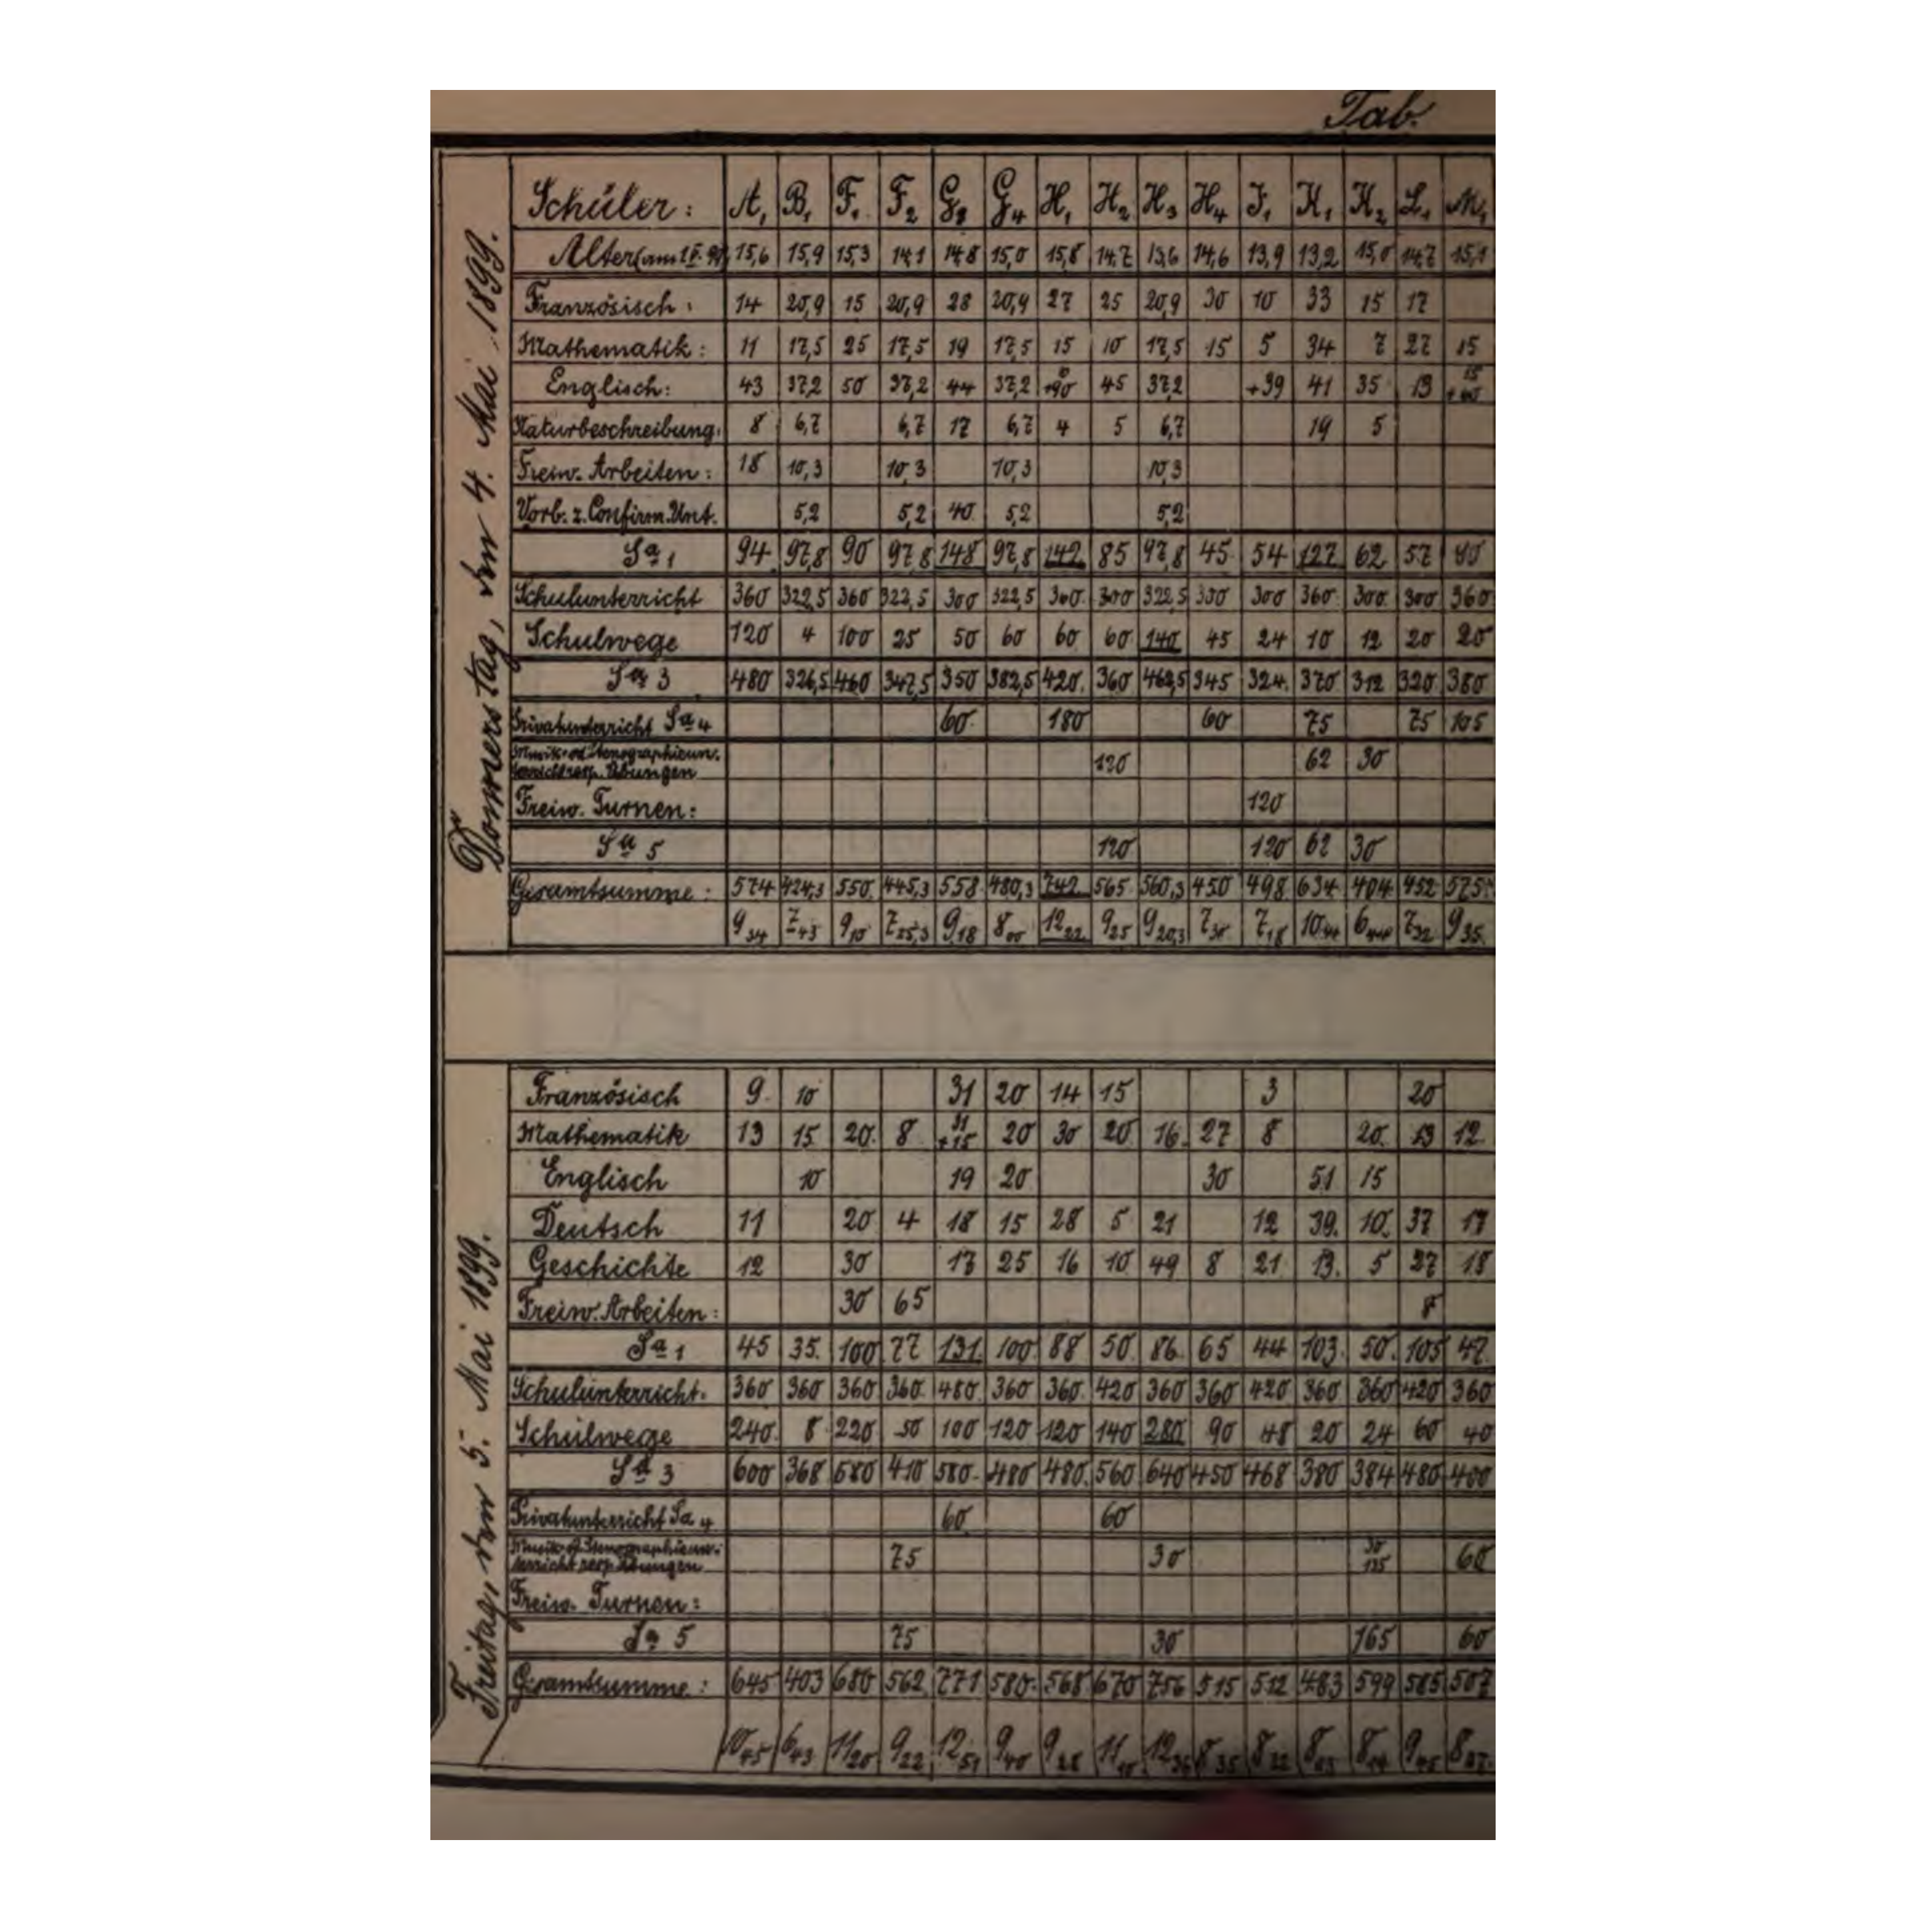 Tab.
Donnerstag, den 4. Mai 1899.
Schüler: A₁ B₁ F₁ F₂ G₃ G₄ H₁ H₂ H₃ H₄ J₁ K₁ K₂ L₁ M₁
Alter (am 1.V.99) 15,6 15,9 15,3 14,1 14,8 15,0 15,8 14,7 13,6 14,6 13,9 13,2 15,0 14,7 15,1
Französisch: 14 20,9 15 20,9 28 20,9 27 25 20,9 30 10 33 15 17
Mathematik: 11 17,5 25 17,5 19 17,5 15 10 17,5 15 5 34 7 27 15
Englisch: 43 37,2 50 37,2 44 37,2 +90 45 37,2 +39 41 35 13 15 +60
Naturbeschreibung: 8 6,7 6,7 17 6,7 4 5 6,7 19 5
Freiw. Arbeiten: 18 10,3 10,3 10,3 10,3
Vorb. z. Confirm. Unt. 5,2 5,2 40 5,2 5,2
Sa 1 94 97,8 90 97,8 148 97,8 142 85 97,8 45 54 127 62 57 90
Schulunterricht 360 322,5 360 322,5 300 322,5 360 300 322,5 300 300 360 300 300 360
Schulwege 120 4 100 25 50 60 60 60 140 45 24 10 12 20 20
Sa 3 480 326,5 460 347,5 350 382,5 420 360 462,5 345 324 370 312 320 380
Privatunterricht Sa 4 60 180 60 75 75 105
Musik- od. Stenographieun-
terricht resp. Übungen 120 62 30
Freiw. Turnen: 120
Sa 5 120 120 62 30
Gesamtsumme: 574 424,3 550 445,3 558 480,3 742 565 560,3 450 498 634 404 452 575
9₃₄ 7₄₃ 9₁₀ 7₂₅,₃ 9₁₈ 8₀₀ 12₂₂ 9₂₅ 9₂₀,₃ 7₃₀ 7₁₈ 10₃₄ 6₄₄ 7₃₂ 9₃₅
Freitag, den 5. Mai 1899.
Französisch 9 10 31 20 14 15 3 20
Mathematik 13 15 20 8 31 +15 20 30 20 16 27 8 20 13 12
Englisch 10 19 20 30 51 15
Deutsch 11 20 4 18 15 28 5 21 12 39 10 37 17
Geschichte 12 30 17 25 16 10 49 8 21 13 5 27 18
Freiw. Arbeiten: 30 65 8
Sa 1 45 35 100 77 131 100 88 50 86 65 44 103 50 105 47
Schulunterricht 360 360 360 360 480 360 360 420 360 360 420 360 360 420 360
Schulwege 240 8 220 50 100 120 120 140 280 90 48 20 24 60 40
Sa 3 600 368 580 410 580 480 480 560 640 450 468 380 384 480 400
Privatunterricht Sa 4 60 60
Musik- od. Stenographieun-
terricht resp. Übungen 75 30 30 135 60
Freiw. Turnen:
Sa 5 75 30 165 60
Gesamtsumme: 645 403 680 562 771 580 568 670 756 515 512 483 599 585 507
10₄₅ 6₄₃ 11₂₀ 9₂₂ 12₅₁ 9₄₀ 9₂₈ 11₁₀ 12₃₆ 8₃₅ 8₃₂ 8₀₃ 9₄₅ 8₂₇